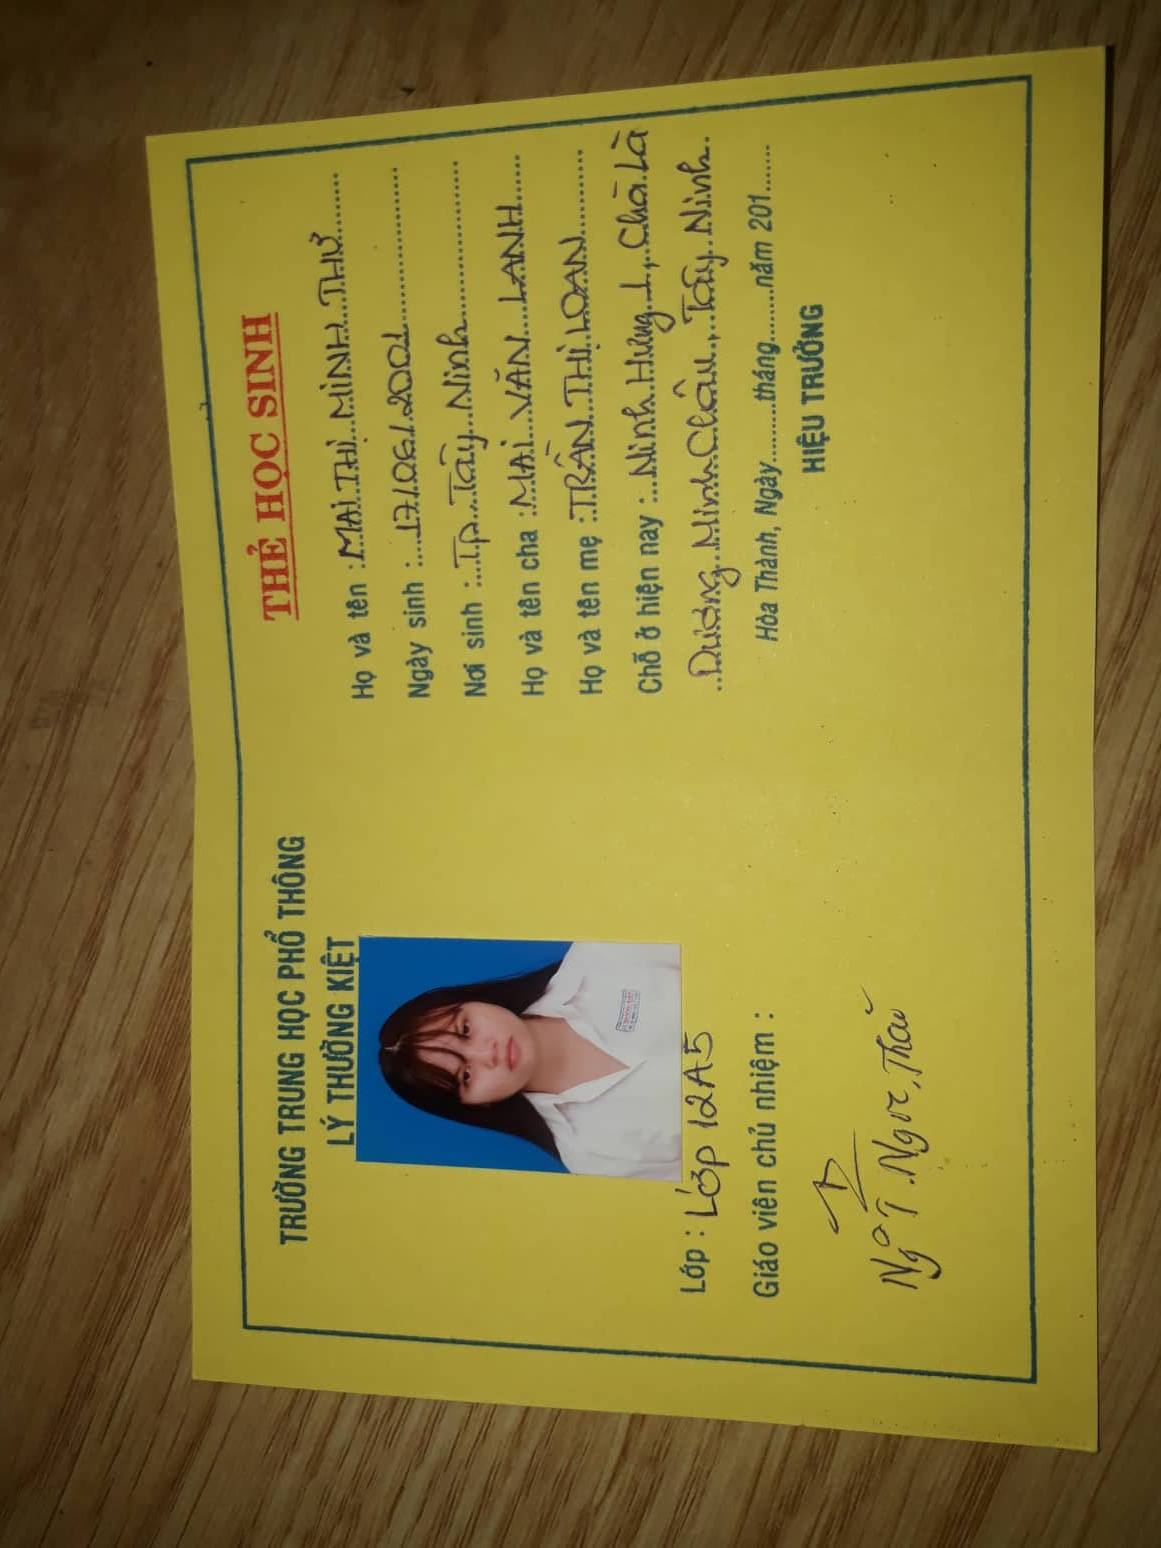 TRƯỜNG TRUNG HỌC PHỔ THÔNG
LÝ THƯỜNG KIỆT
Lớp : Lớp 12A5
Giáo viên chủ nhiệm :
Ngô T. Ngọc Thảo
THẺ HỌC SINH
Họ và tên : MAI THỊ MINH THƯ
Ngày sinh : 17/06/2001
Nơi sinh : Tp Tây Ninh
Họ và tên cha : MAI VĂN LANH
Họ và tên mẹ : TRẦN THỊ LOAN
Chỗ ở hiện nay : Ninh Hưng 1, Chà Là
Dương Minh Châu, Tây Ninh.
Hòa Thành, Ngày.........tháng.........năm 201.......
HIỆU TRƯỞNG